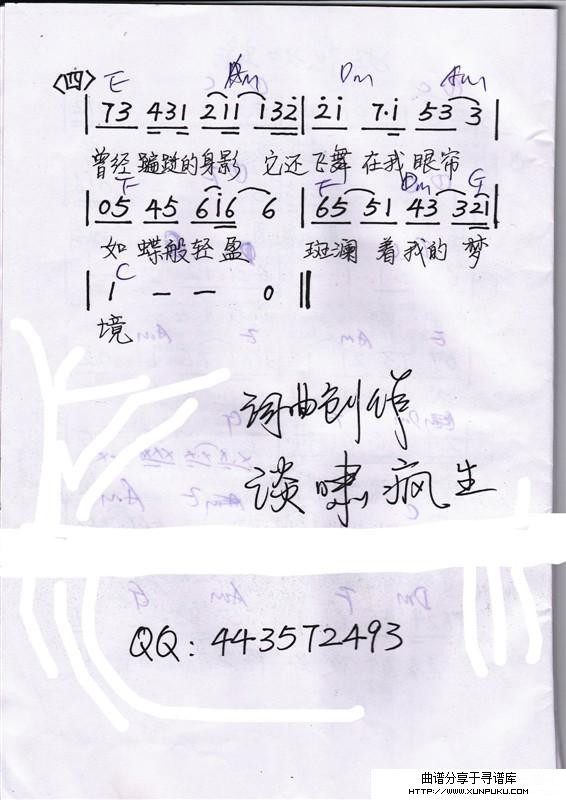 〈四〉 E Am Dm Am
| 73 431 2i1 132 | 2i 7·i 53 3 |
曾经蹁跹的身影 它还飞舞 在我眼帘
F F Dm G
| 05 45 6i6 6 | 65 51 43 321 |
如 蝶般轻盈 斑澜 着我的 梦
C
| 1 — — 0 ‖
境
词曲创作
谈啸疯生
QQ: 443572493
曲谱分享于寻谱库
WWW.XUNPUKU.COM